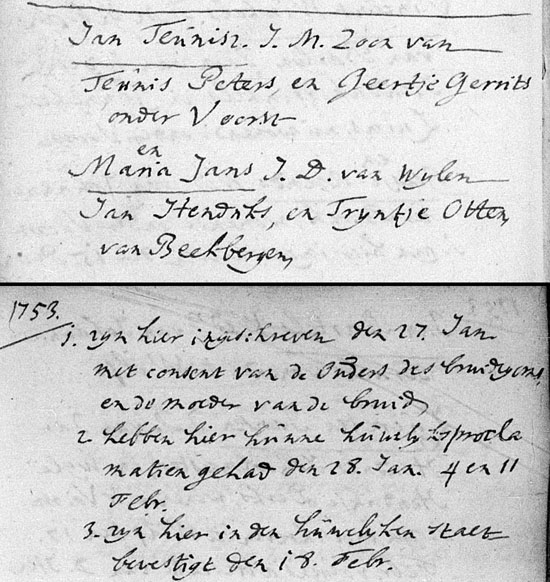 Jan Teunisz. J. M. Zoon van
Teunis Peters, en Geertje Gerrits
onder Voorst
en
Maria Jans J. D. van wylen
Jan Hendriks, en Tryntje Otten,
van Beekbergen,
1753.
1. zyn hier ingeschreven den 27. Jan.
met consent van de Ouders des bruidegoms,
en de moeder van de bruid,
2 hebben hier hunne huwelyksprocla
matien gehad den 28. Jan. 4 en 11
Febr.
3. zyn hier in den huwelyken staet
bevestigt den 18. Febr.